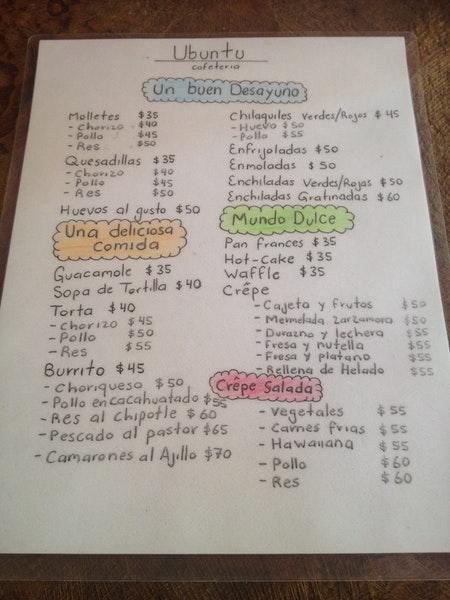 Ubuntu
cafeteria
Un buen Desayuno
Molletes $35
- Chorizo $40
- Pollo $45
- Res $50
Quesadillas $35
- Chorizo $40
- Pollo $45
- Res $50
Huevos al gusto $50
Chilaquiles Verdes/Rojos $45
- Huevo $50
- Pollo $55
Enfrijoladas $50
Enmoladas $50
Enchiladas Verdes/Rojas $50
Enchiladas Gratinadas $60
Una deliciosa
comida
Guacamole $35
Sopa de Tortilla $40
Torta $40
- Chorizo $45
- Pollo $50
- Res $55
Burrito $45
- Choriqueso $50
- Pollo en cacahuatado $55
- Res al chipotle $60
- Pescado al pastor $65
- Camarones al Ajillo $70
Mundo Dulce
Pan frances $35
Hot-Cake $35
Waffle $35
Crêpe
- Cajeta y frutos $50
- Mermelada Zarzamora $50
- Durazno y lechera $55
- Fresa y nutella $55
- Fresa y platano $55
- Rellena de Helado $55
Crêpe Salada
- Vegetales $55
- Carnes frias $55
- Hawaiiana $55
- Pollo $60
- Res $60